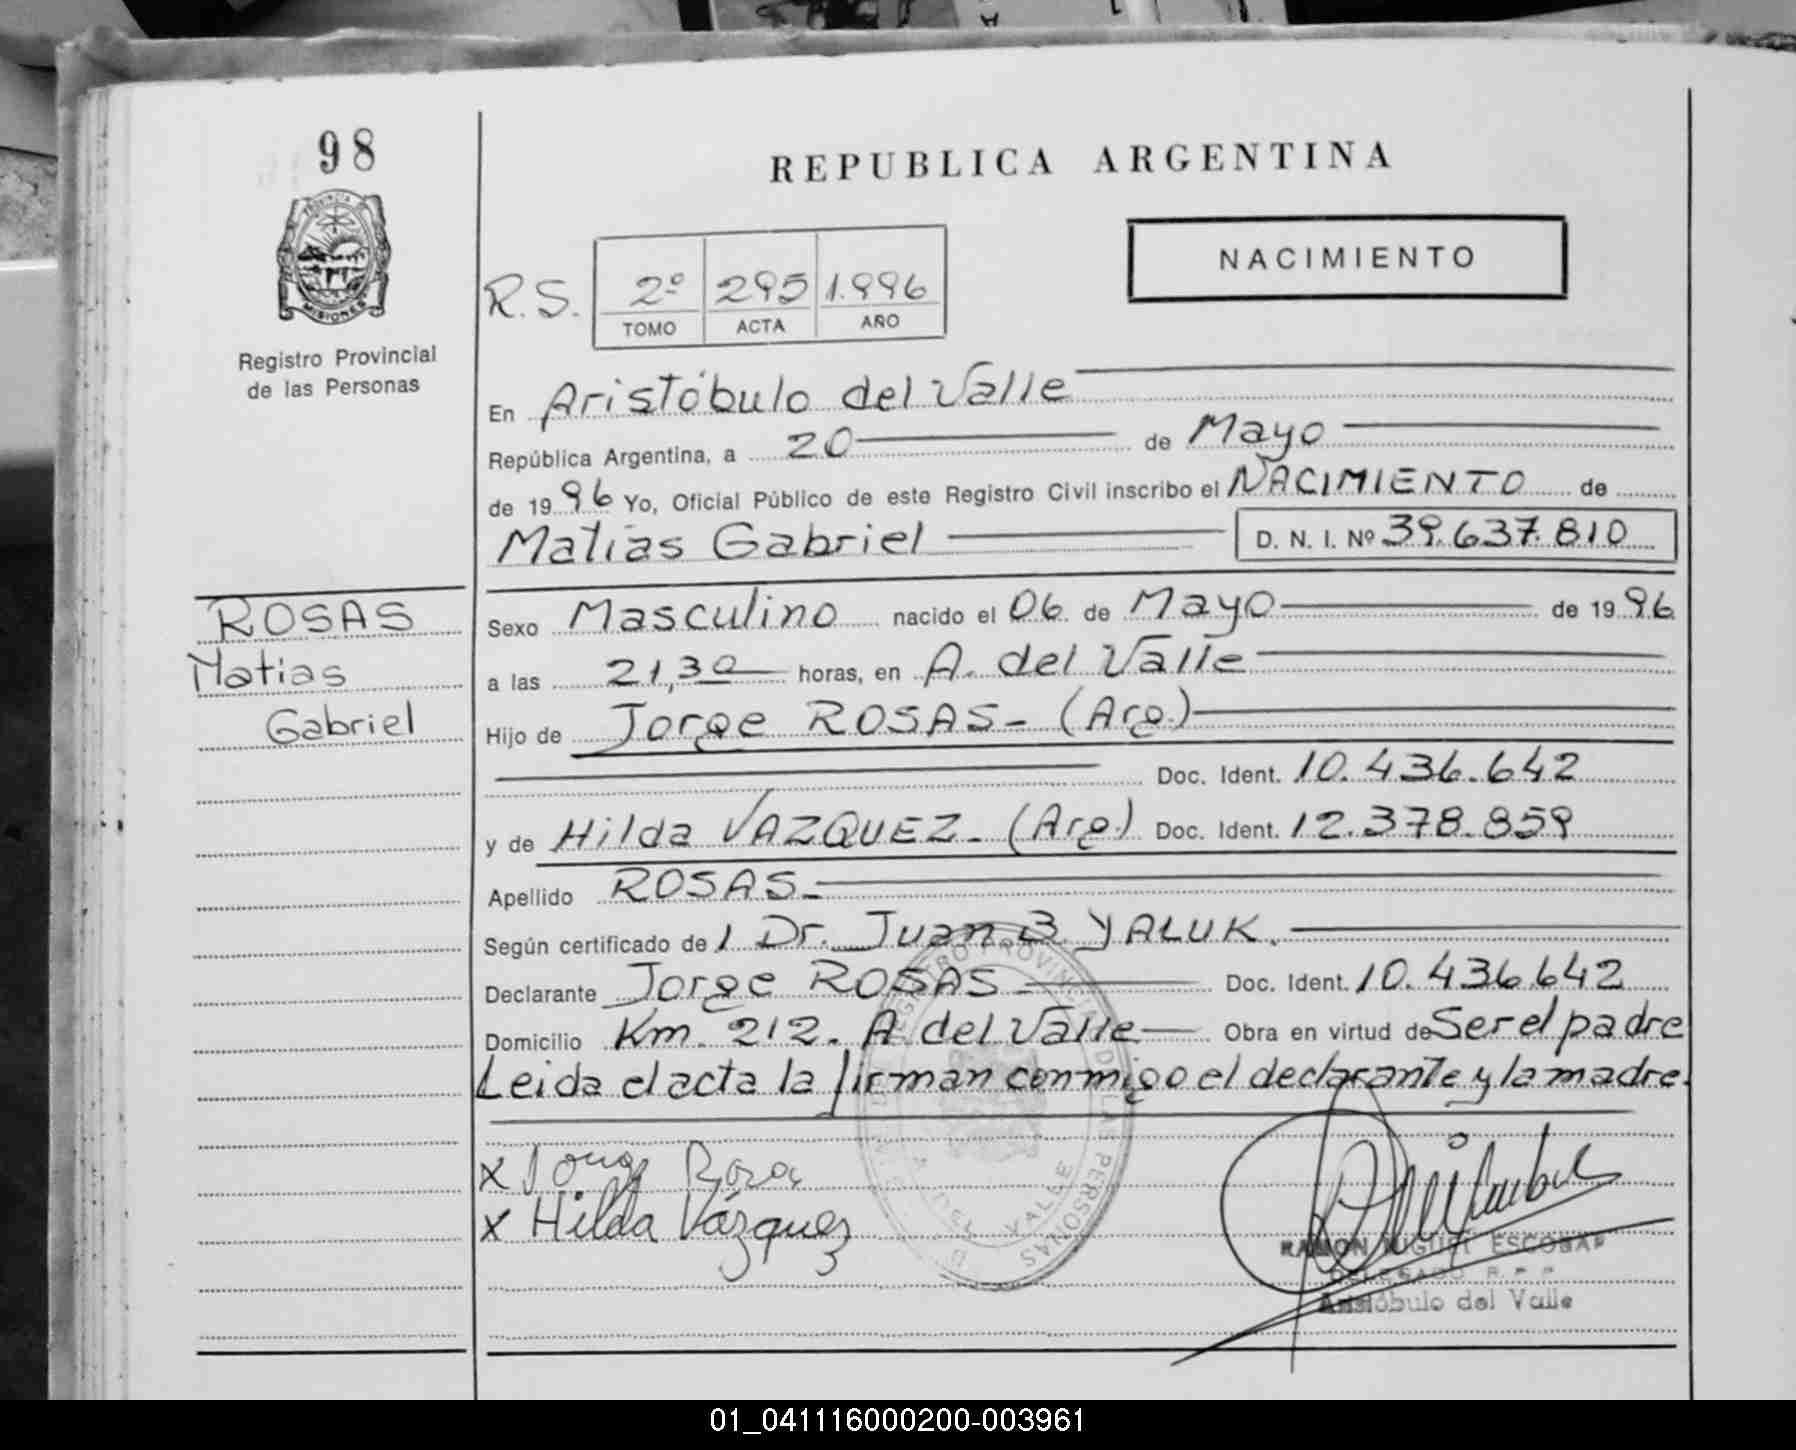 98
PROVINCIA DE
MISIONES
Registro Provincial
de las Personas
REPUBLICA ARGENTINA
NACIMIENTO
R.S. 2º 295 1.996
TOMO ACTA AÑO
En Aristóbulo del Valle
República Argentina, a 20 de Mayo
de 1996 Yo, Oficial Público de este Registro Civil inscribo el NACIMIENTO de
Matías Gabriel D. N. I. Nº 39.637.810
ROSAS
Matias
Gabriel
Sexo Masculino nacido el 06 de Mayo de 1996
a las 21,30 horas, en A. del Valle
Hijo de Jorge ROSAS- (Arg.)
Doc. Ident. 10.436.642
y de Hilda VAZQUEZ- (Arg.) Doc. Ident. 12.378.859
Apellido ROSAS-
Según certificado de 1 Dr. Juan B. YALUK.
Declarante Jorge ROSAS- Doc. Ident. 10.436.642
Domicilio Km. 212. A del Valle Obra en virtud de Ser el padre
Leida el acta la firman conmigo el declarante y la madre.
REGISTRO PROVINCIAL DE LAS PERSONAS
DEL VALLE
x Jorge Rosas
x Hilda Vázquez
RAMON MIGUEL ESCOBAR
DELEGADO R. P. P.
Aristóbulo del Valle
01_041116000200-003961